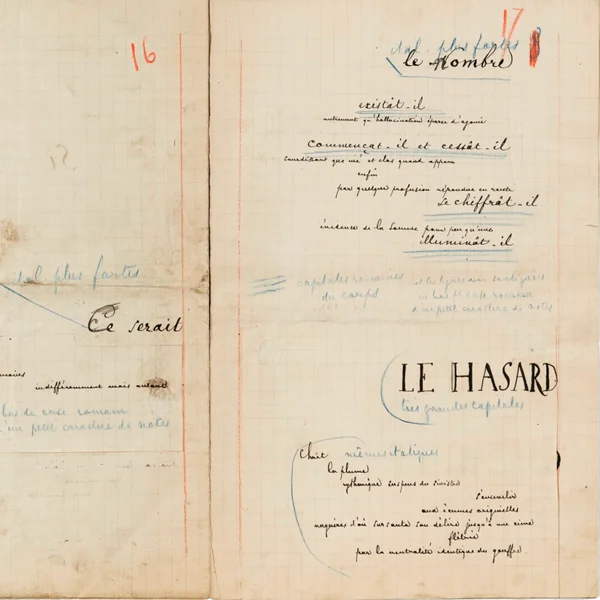 16
ital. plus fortes
Ce serait
moins
indifféremment mais autant
bas de casse romain
d'un petit caractère de notes
17
ital. plus fortes
le Nombre
existât-il
autrement qu'hallucination éparse d'agonie
commençât-il et cessât-il
sourdant que nié et clos quand apparu
enfin
par quelque profusion répandue en rareté
se chiffrât-il
évidence de la somme pour peu qu'une
illuminât-il
capitales romaines
du corps
et les lignes non soulignées
en bas de casse romain
d'un petit caractère de notes
LE HASARD
très grandes capitales
Choit
mêmes italiques
la plume
rythmique suspens du sinistre
s'ensevelir
aux écumes originelles
naguères d'où sursauta son délire jusqu'à une cime
flétrie
par la neutralité identique du gouffre